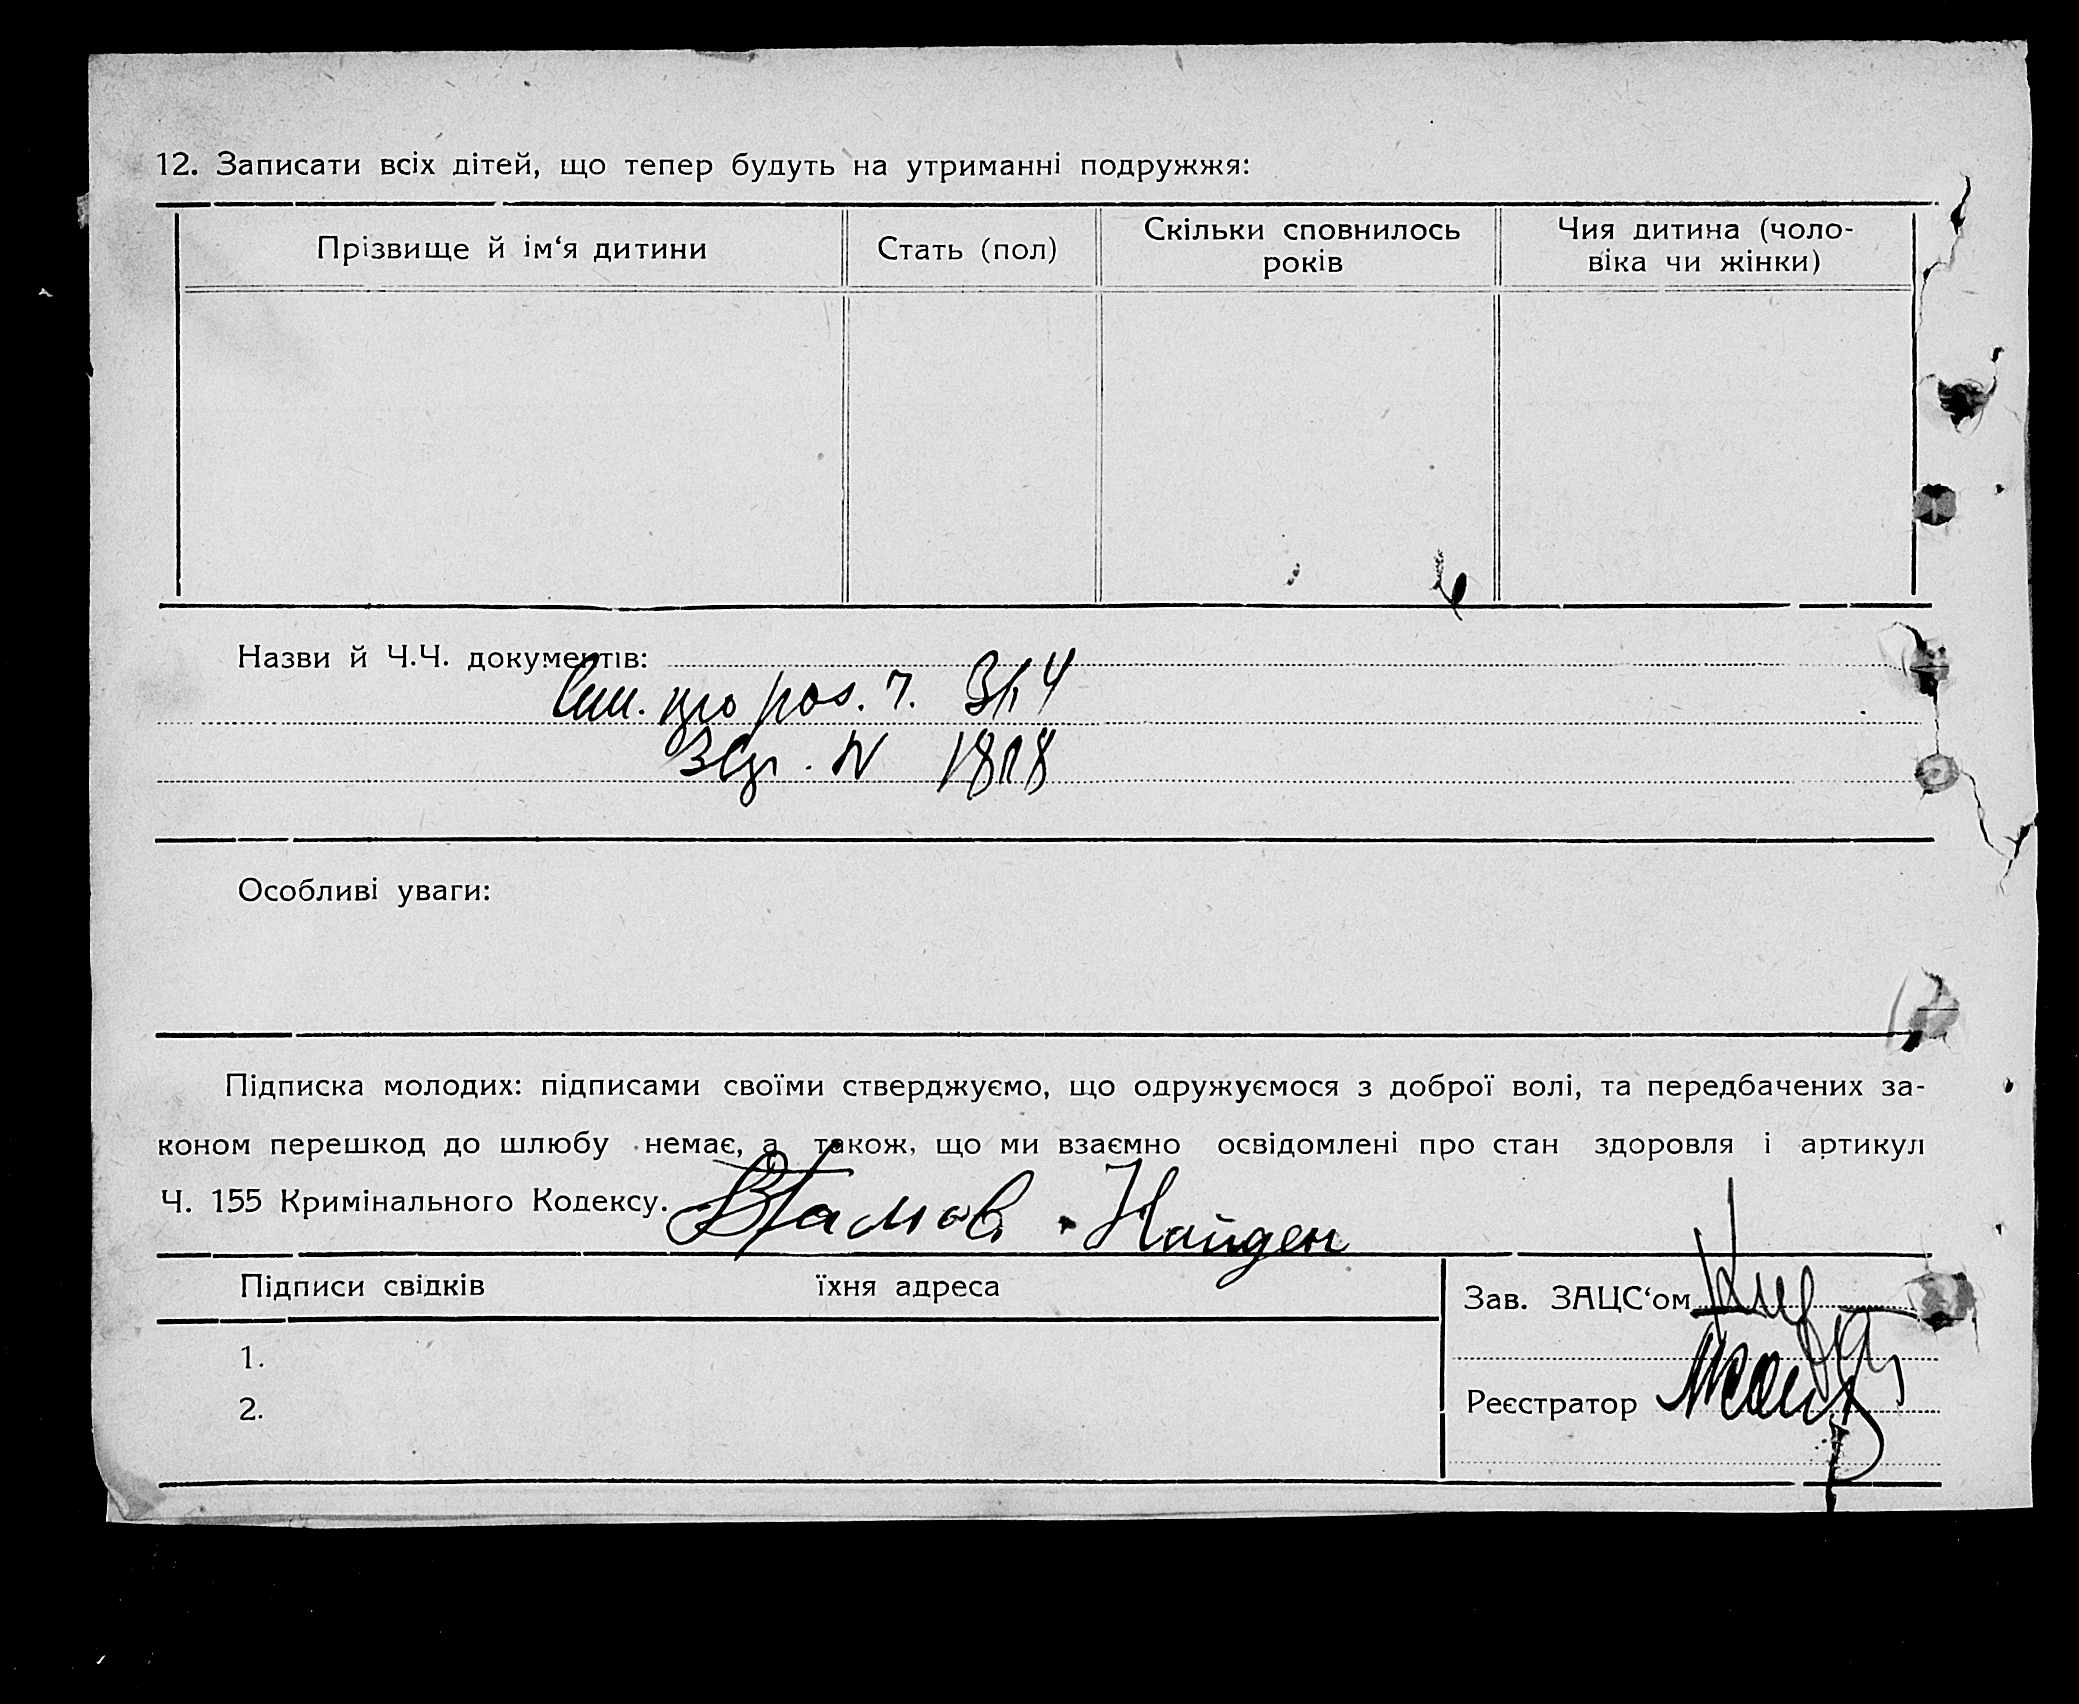 12. Записати всіх дітей, що тепер будуть на утриманні подружжя:
Прізвище й ім‘я дитини
Стать (пол)
Скільки сповнилось
років
Чия дитина (чоло-
віка чи жінки)
Назви й Ч.Ч. документів:
про роз. ч.
N 1818
Особливі уваги:
Підписка молодих: підписами своїми стверджуємо, що одружуємося з доброї волі, та передбачених за-
коном перешкод до шлюбу немає, а також, що ми взаємно освідомлені про стан здоровля і артикул
Ч. 155 Кримінального Кодексу.
Найден
Підписи свідків
їхня адреса
1.
2.
Зав. ЗАЦС‘ом
Реєстратор